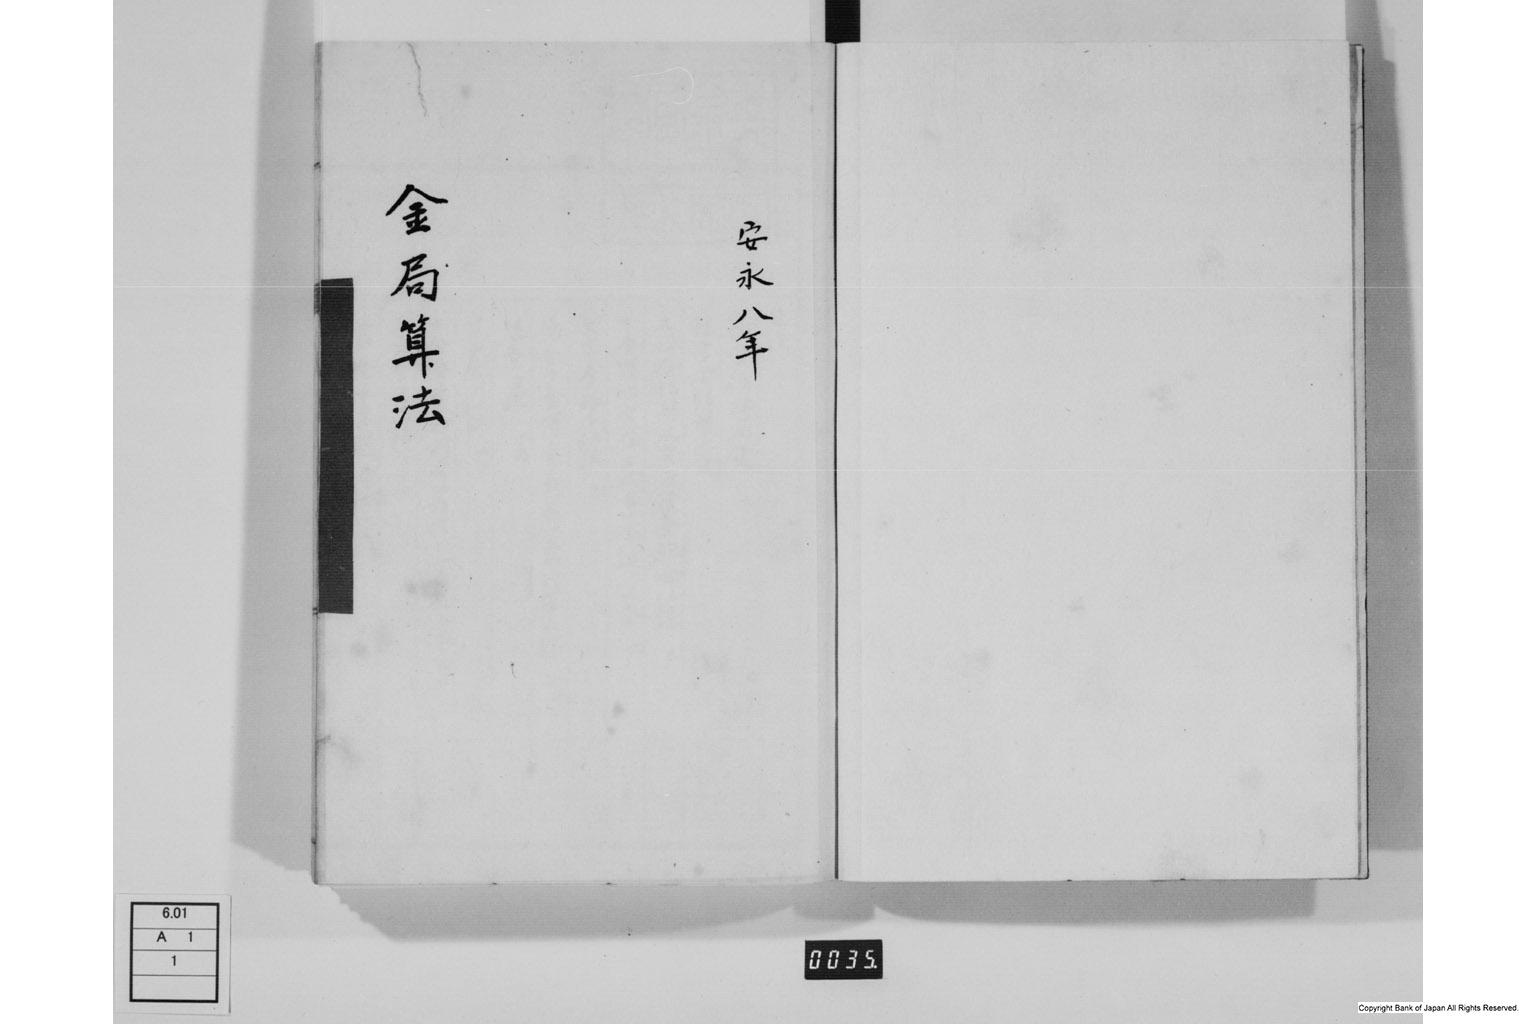 安永八年
金局算法
6.01
A 1
1
0035.
Copyright Bank of Japan All Rights Reserved.